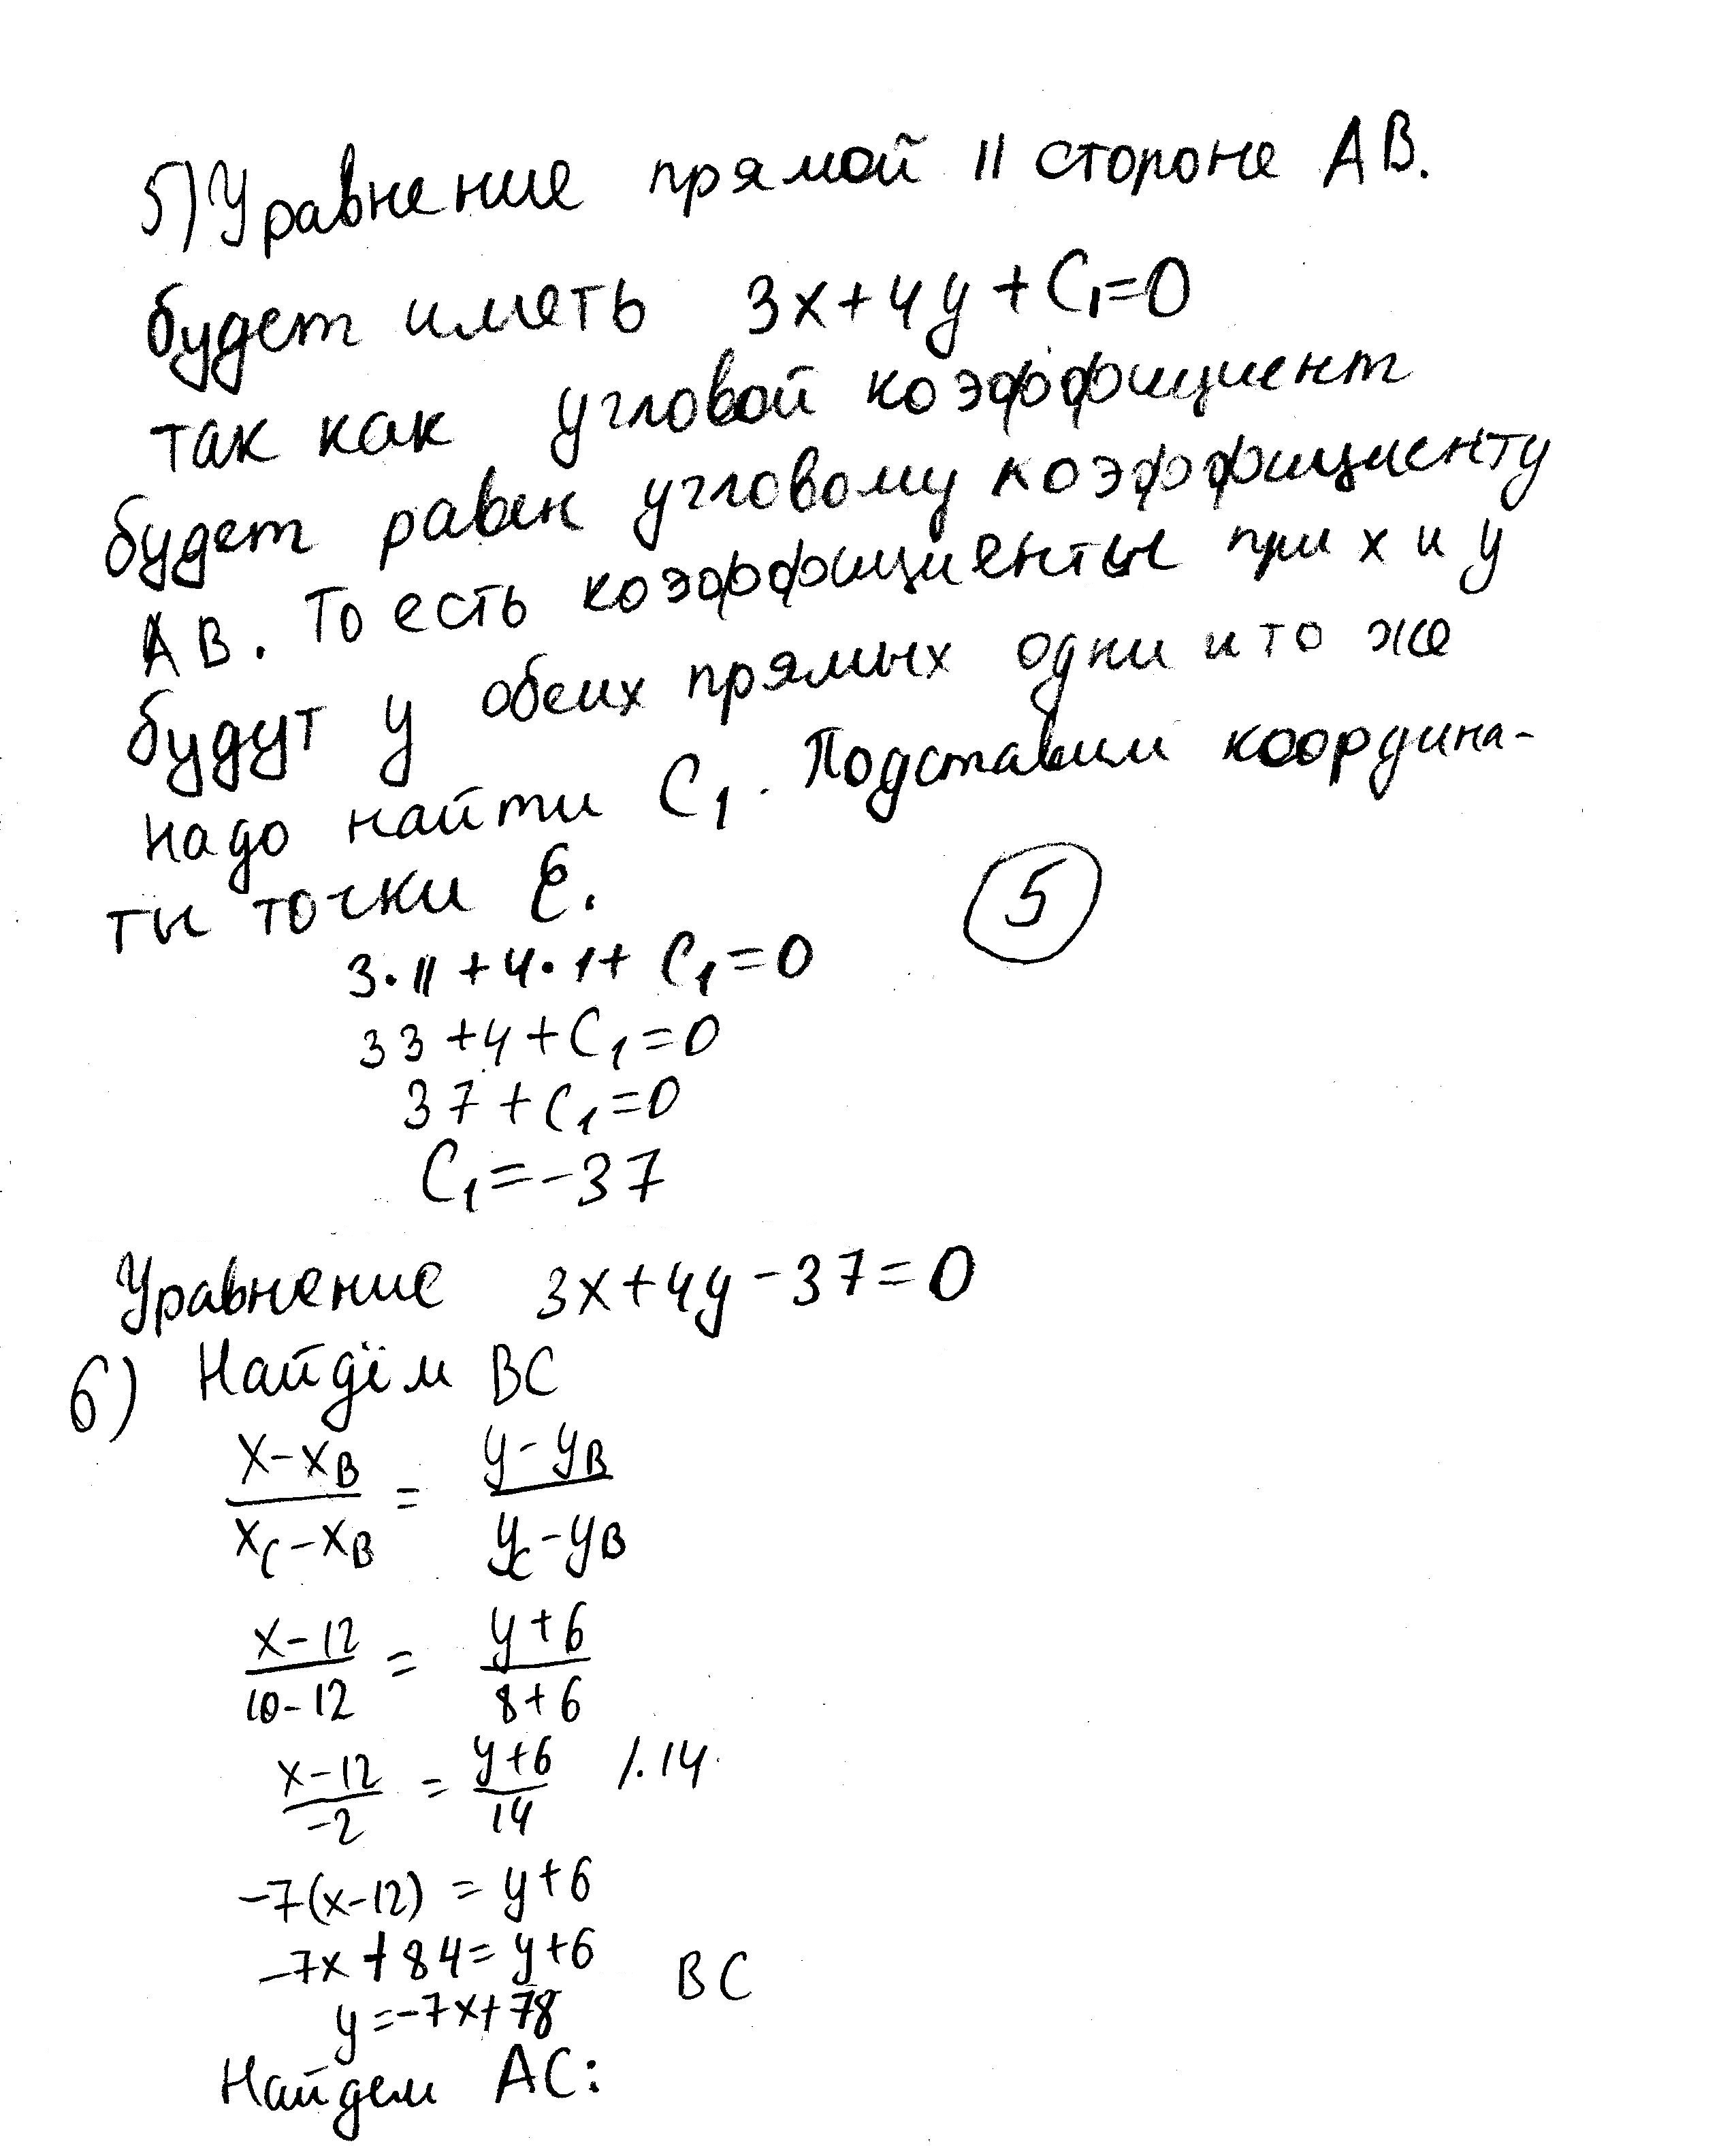 5) Уравнение прямой || стороне АВ.
будет иметь 3x+4y+C₁=0
так как угловой коэффициент
будет равен угловому коэффициенту
АВ. То есть коэффициенты при x и y
будут у обеих прямых одни и то же
надо найти C₁. Подставим координа-
ты точки E.
5
3·11+4·1+C₁=0
33+4+C₁=0
37+C₁=0
C₁=-37
Уравнение 3x+4y-37=0
6) Найдём BC
(x-x_B)/(x_C-x_B) = (y-y_B)/(y_C-y_B)
(x-12)/(10-12) = (y+6)/(8+6)
(x-12)/(-2) = (y+6)/14 /·14
-7(x-12) = y+6
-7x+84=y+6
y=-7x+78 BC
Найдем AC: